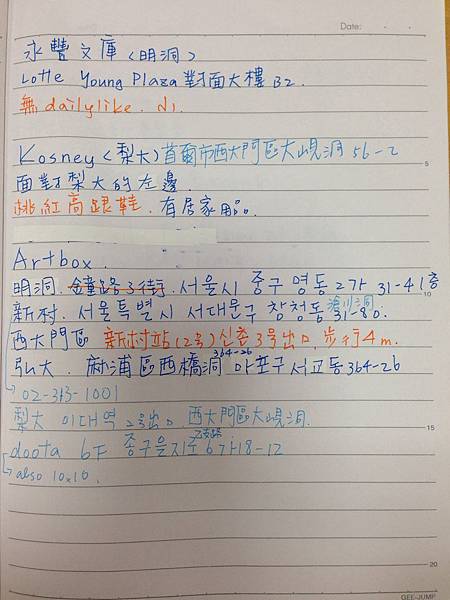 Date: . .
永豐文庫〈明洞〉
Lotte Young Plaza 對面大樓 B2.
無 dailylike. 小.
Kosney〈梨大〉首爾市西大門區大峴洞 56-2
面對梨大的左邊.
桃紅高跟鞋. 有居家用品.
Artbox.
明洞. 鐘路3街. 서울시 중구 명동 2가 31-4 1층
新村. 서울특별시 서대문구 창천동 滄川洞 31-80.
西大門區 新村站(2号) 신촌 3号出口, 步行4m.
弘大. 麻浦區西橋洞 364-26 마포구 서교동 364-26
02-313-1001
梨大 이대역 2号出口 西大門區大峴洞.
doota 6F 중구 을지로 乙支路 6가 18-12
also 10x10.
5
10
15
20
GEE-JUMP